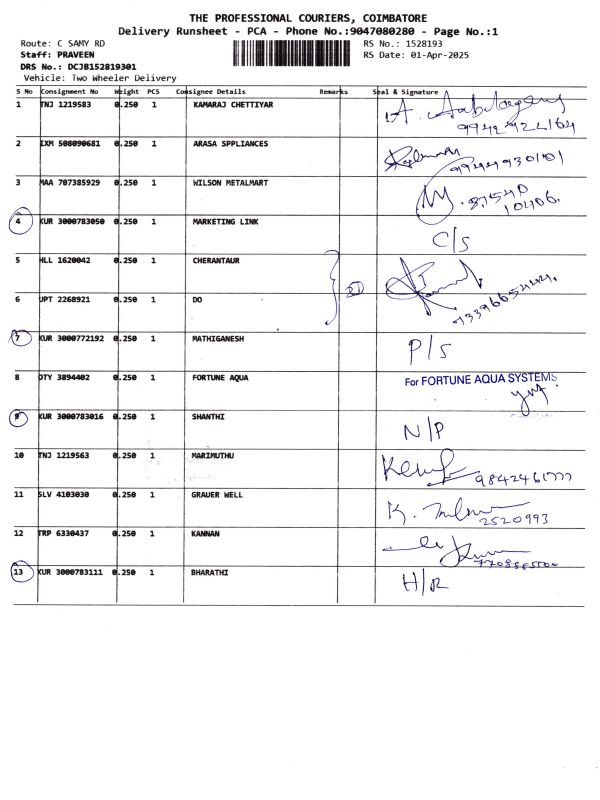 THE PROFESSIONAL COURIERS, COIMBATORE
Delivery Runsheet - PCA - Phone No.:9047080280 - Page No.:1
Route: C SAMY RD RS No.: 1528193
Staff: PRAVEEN RS Date: 01-Apr-2025
DRS No.: DCJB152819301
Vehicle: Two Wheeler Delivery
S No Consignment No Weight PCS Consignee Details Remarks Seal & Signature
1 TNJ 1219583 0.250 1 KAMARAJ CHETTIYAR
2 IXM 508090681 0.250 1 ARASA SPPLIANCES 9944930101
3 MAA 707385929 0.250 1 WILSON METALMART
4 KUR 3000783050 0.250 1 MARKETING LINK C/S
5 HLL 1620042 0.250 1 CHERANTAUR
6 UPT 2268921 0.250 1 DO
7 KUR 3000772192 0.250 1 MATHIGANESH P/S
8 OTY 3894402 0.250 1 FORTUNE AQUA For FORTUNE AQUA SYSTEMS
9 KUR 3000783016 0.250 1 SHANTHI N/P
10 TNJ 1219563 0.250 1 MARIMUTHU
11 SLV 4103030 0.250 1 GRAUER WELL 2520993
12 TRP 6330437 0.250 1 KANNAN
13 KUR 3000783111 0.250 1 BHARATHI H/R